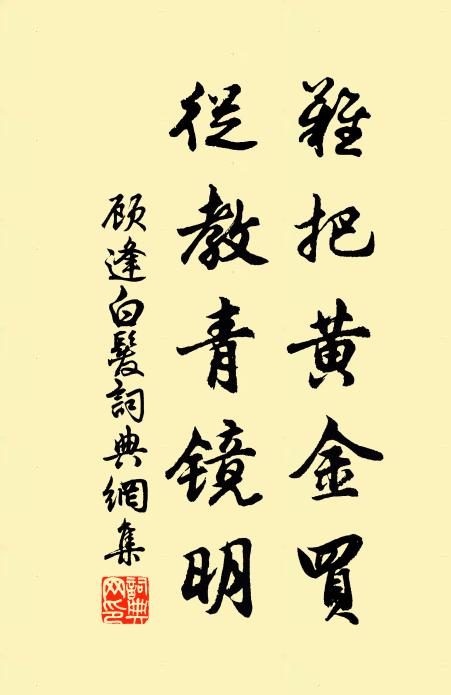 難把黄金買
從教青镜明
顾逢白髮詞典網集
詞典網印